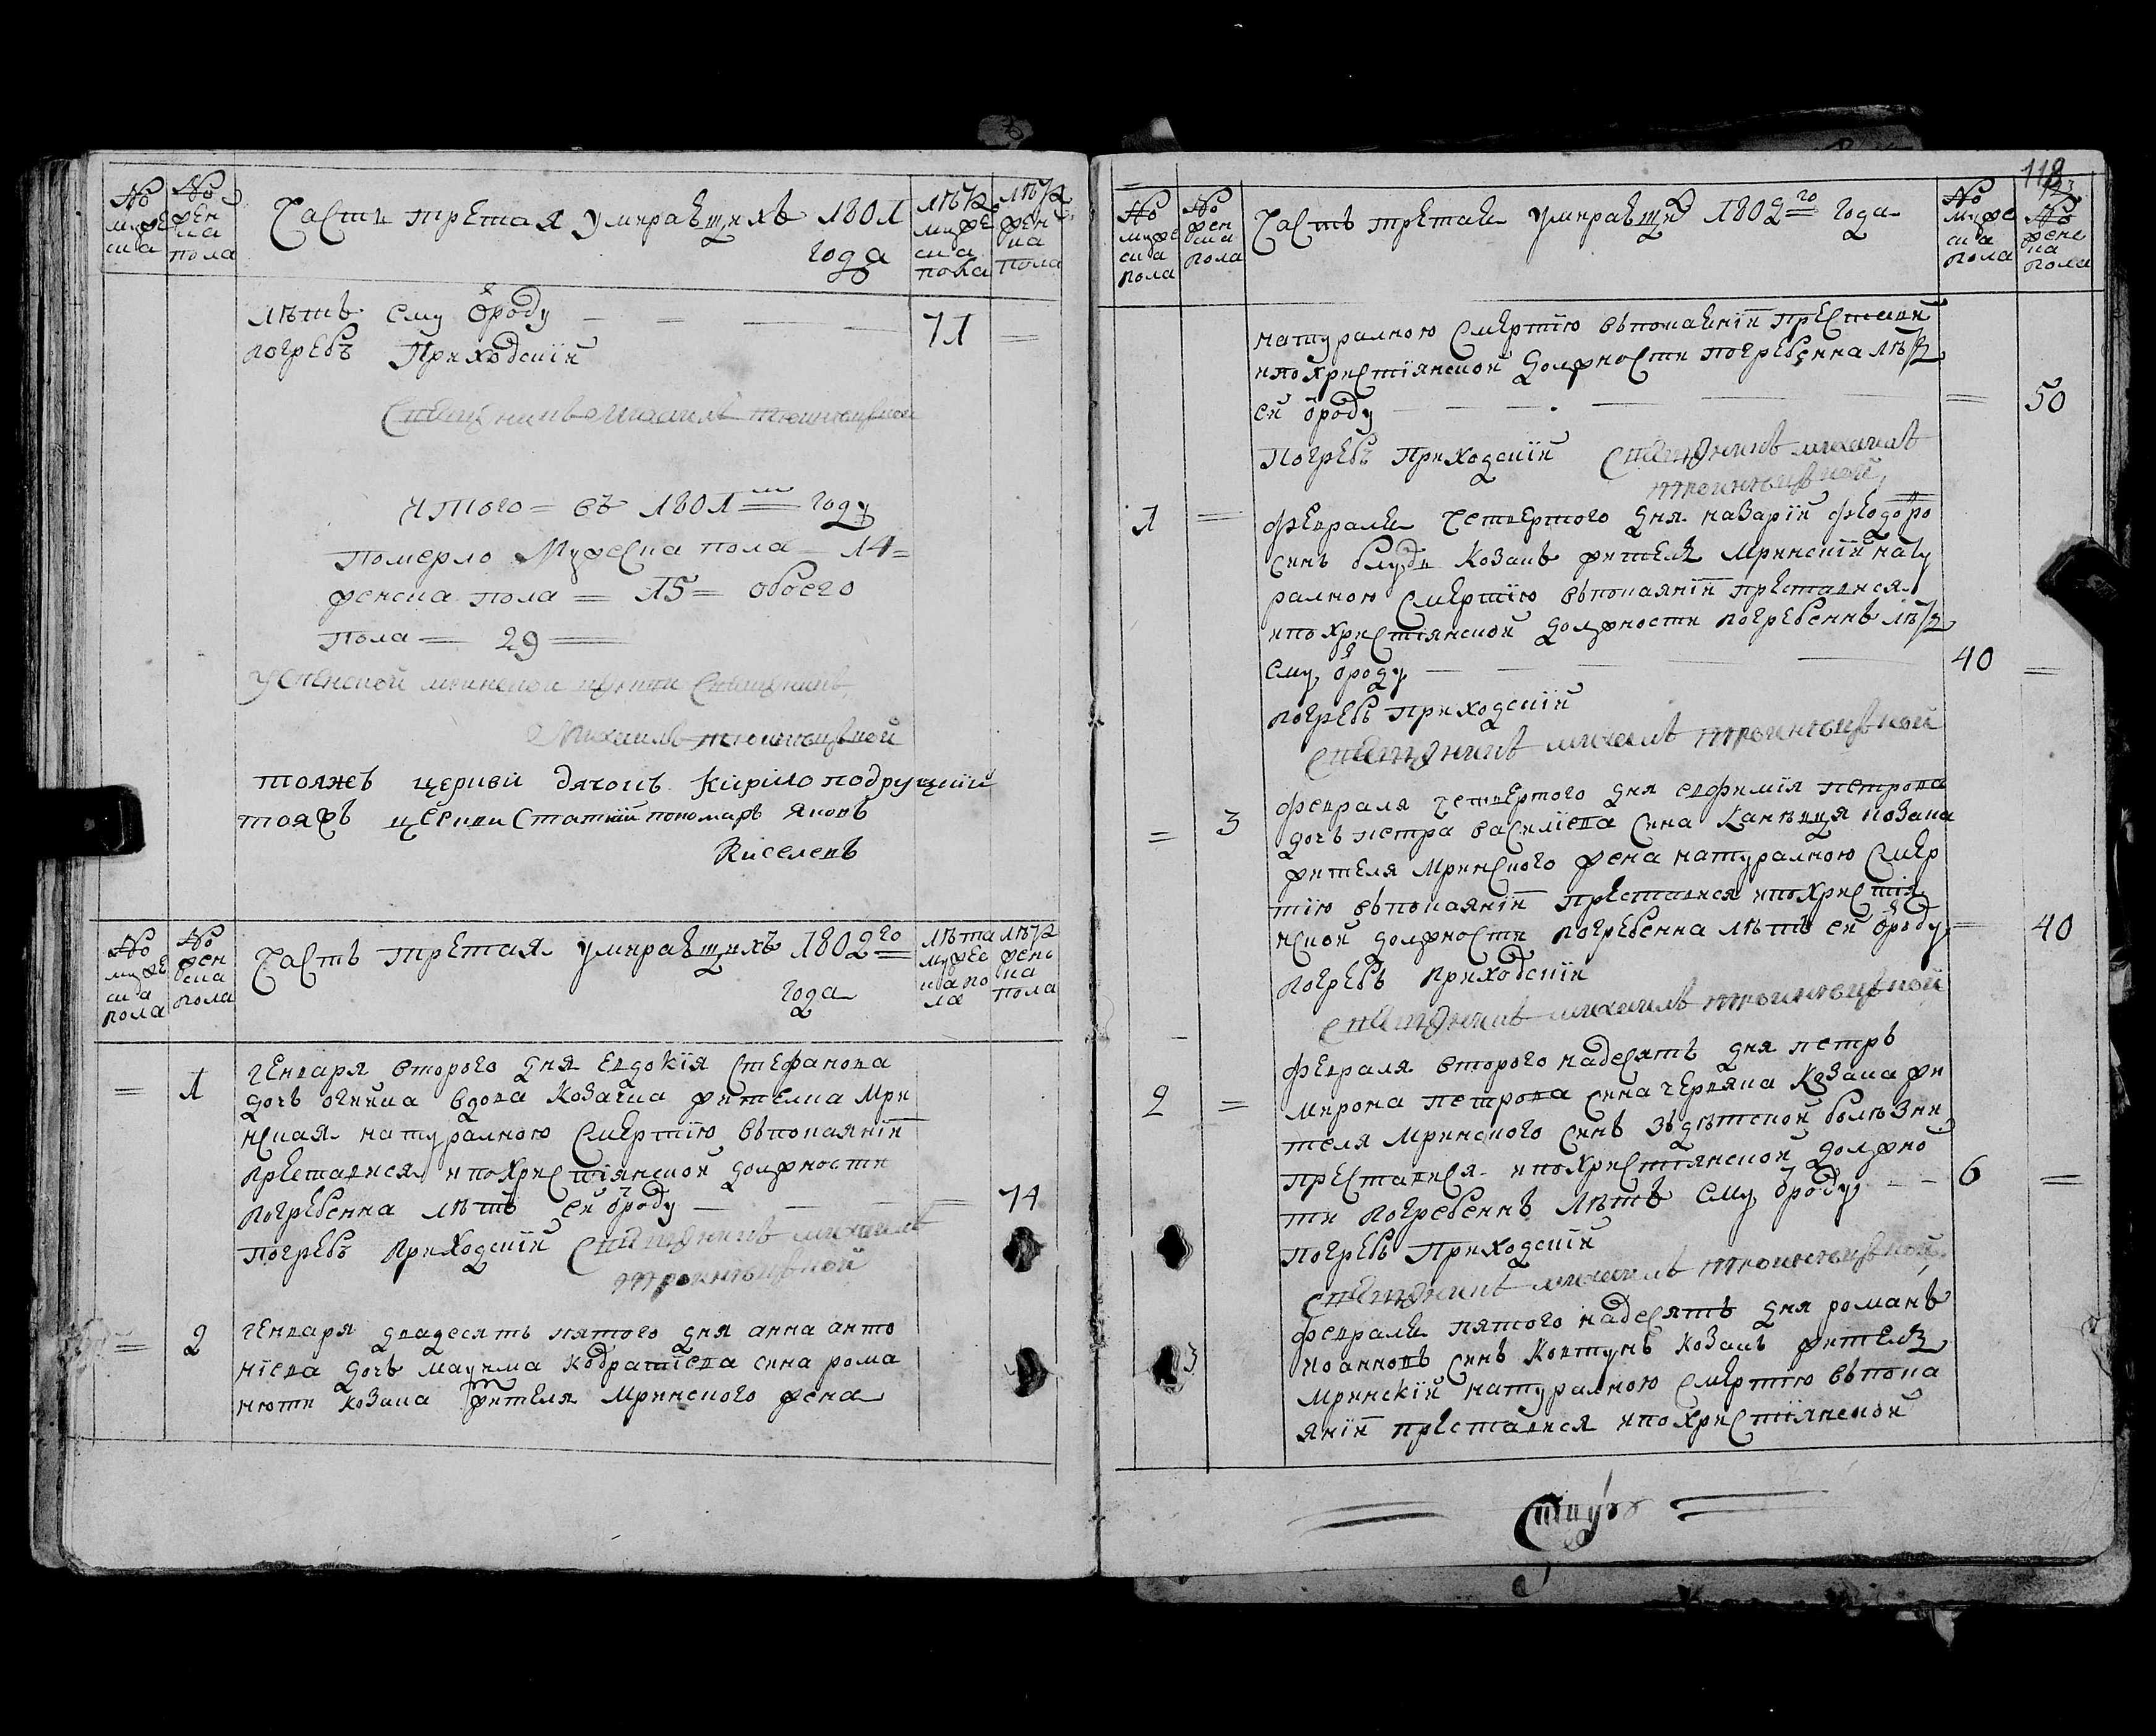 No мужеска
No женска пола
Часть третая умиравщихъ 1801
года
лѣта мужеска пола
лѣта женска пола
лѣтъ ему ѿроду 71
погребъ Приходскій
Священникъ Михаилъ
Итого въ 1801м году
Померло Мужеска пола 14
женска пола 15 обоего
Пола 29
Успенской мринской церкви Священникъ
Михаилъ
тояжъ церкви дячокъ Кирило подруцкий
тояжъ церкви Статний пономарь Яковъ
Киселевъ
No мужеска пола
No женска пола
Часть третая умиравщихъ 1802го
года
лѣта мужеска пола
лѣта женска пола
= 1 Генваря второго дня Евдокїя Стефанова
дочь вдова козачка жителка Мри
нская натуралною смертїю въпокаянїи
преставися ипохристіянской должности
погребенна лѣтъ ей ѿроду = 74
погребъ Приходскїй Священникъ михаилъ
= 2 Генваря двадесять пятого дня анна анто
нїева дочь Маѯима кодратїева сина рома
нюти козака жителя Мринского жена
118
No мужеска пола
No женска пола
Часть третая умиравщих 1802го года
No мужеска пола
No женска пола
натуралною смертїю въпокаянїи преставися
ипохристїянской должности погребенна лѣтъ
ей ѿроду = 50
Погребъ Приходскїй Священникъ михаилъ
1 = февраля четвертого дня назарїй феодоро
синъ козакъ житель Мринскїй нату
ралною смертїю въпокаянїи преставися
ипохристїянской должности погребеннъ лѣтъ
ему ѿроду 40 =
погребъ Приходскїй
Священникъ михаилъ
= 3 февраля четвертого дня евфимїя петрова
дочь петра василїева сина козака
жителя Мринского жена натуралною смер
тїю въпокаянїи преставися ипохристїя
нской должности погребенна лѣтъ ей ѿроду = 40
погребъ Приходскїй
Священникъ михаилъ
2 = февраля второго надесять дня петръ
мирона петрова сина червяка козака жи
теля Мринского синъ зъдѣтской болѣзни
преставися ипохристїянской должно
сти погребеннъ лѣтъ ему ѿроду 6 =
погребъ Приходскїй
Священникъ михаилъ
3 февраля пятого надесять дня романъ
иоанновъ синъ Ковтунъ козакъ житель
Мринскїй натуралною смертїю въпока
янїи преставися ипохристїянской